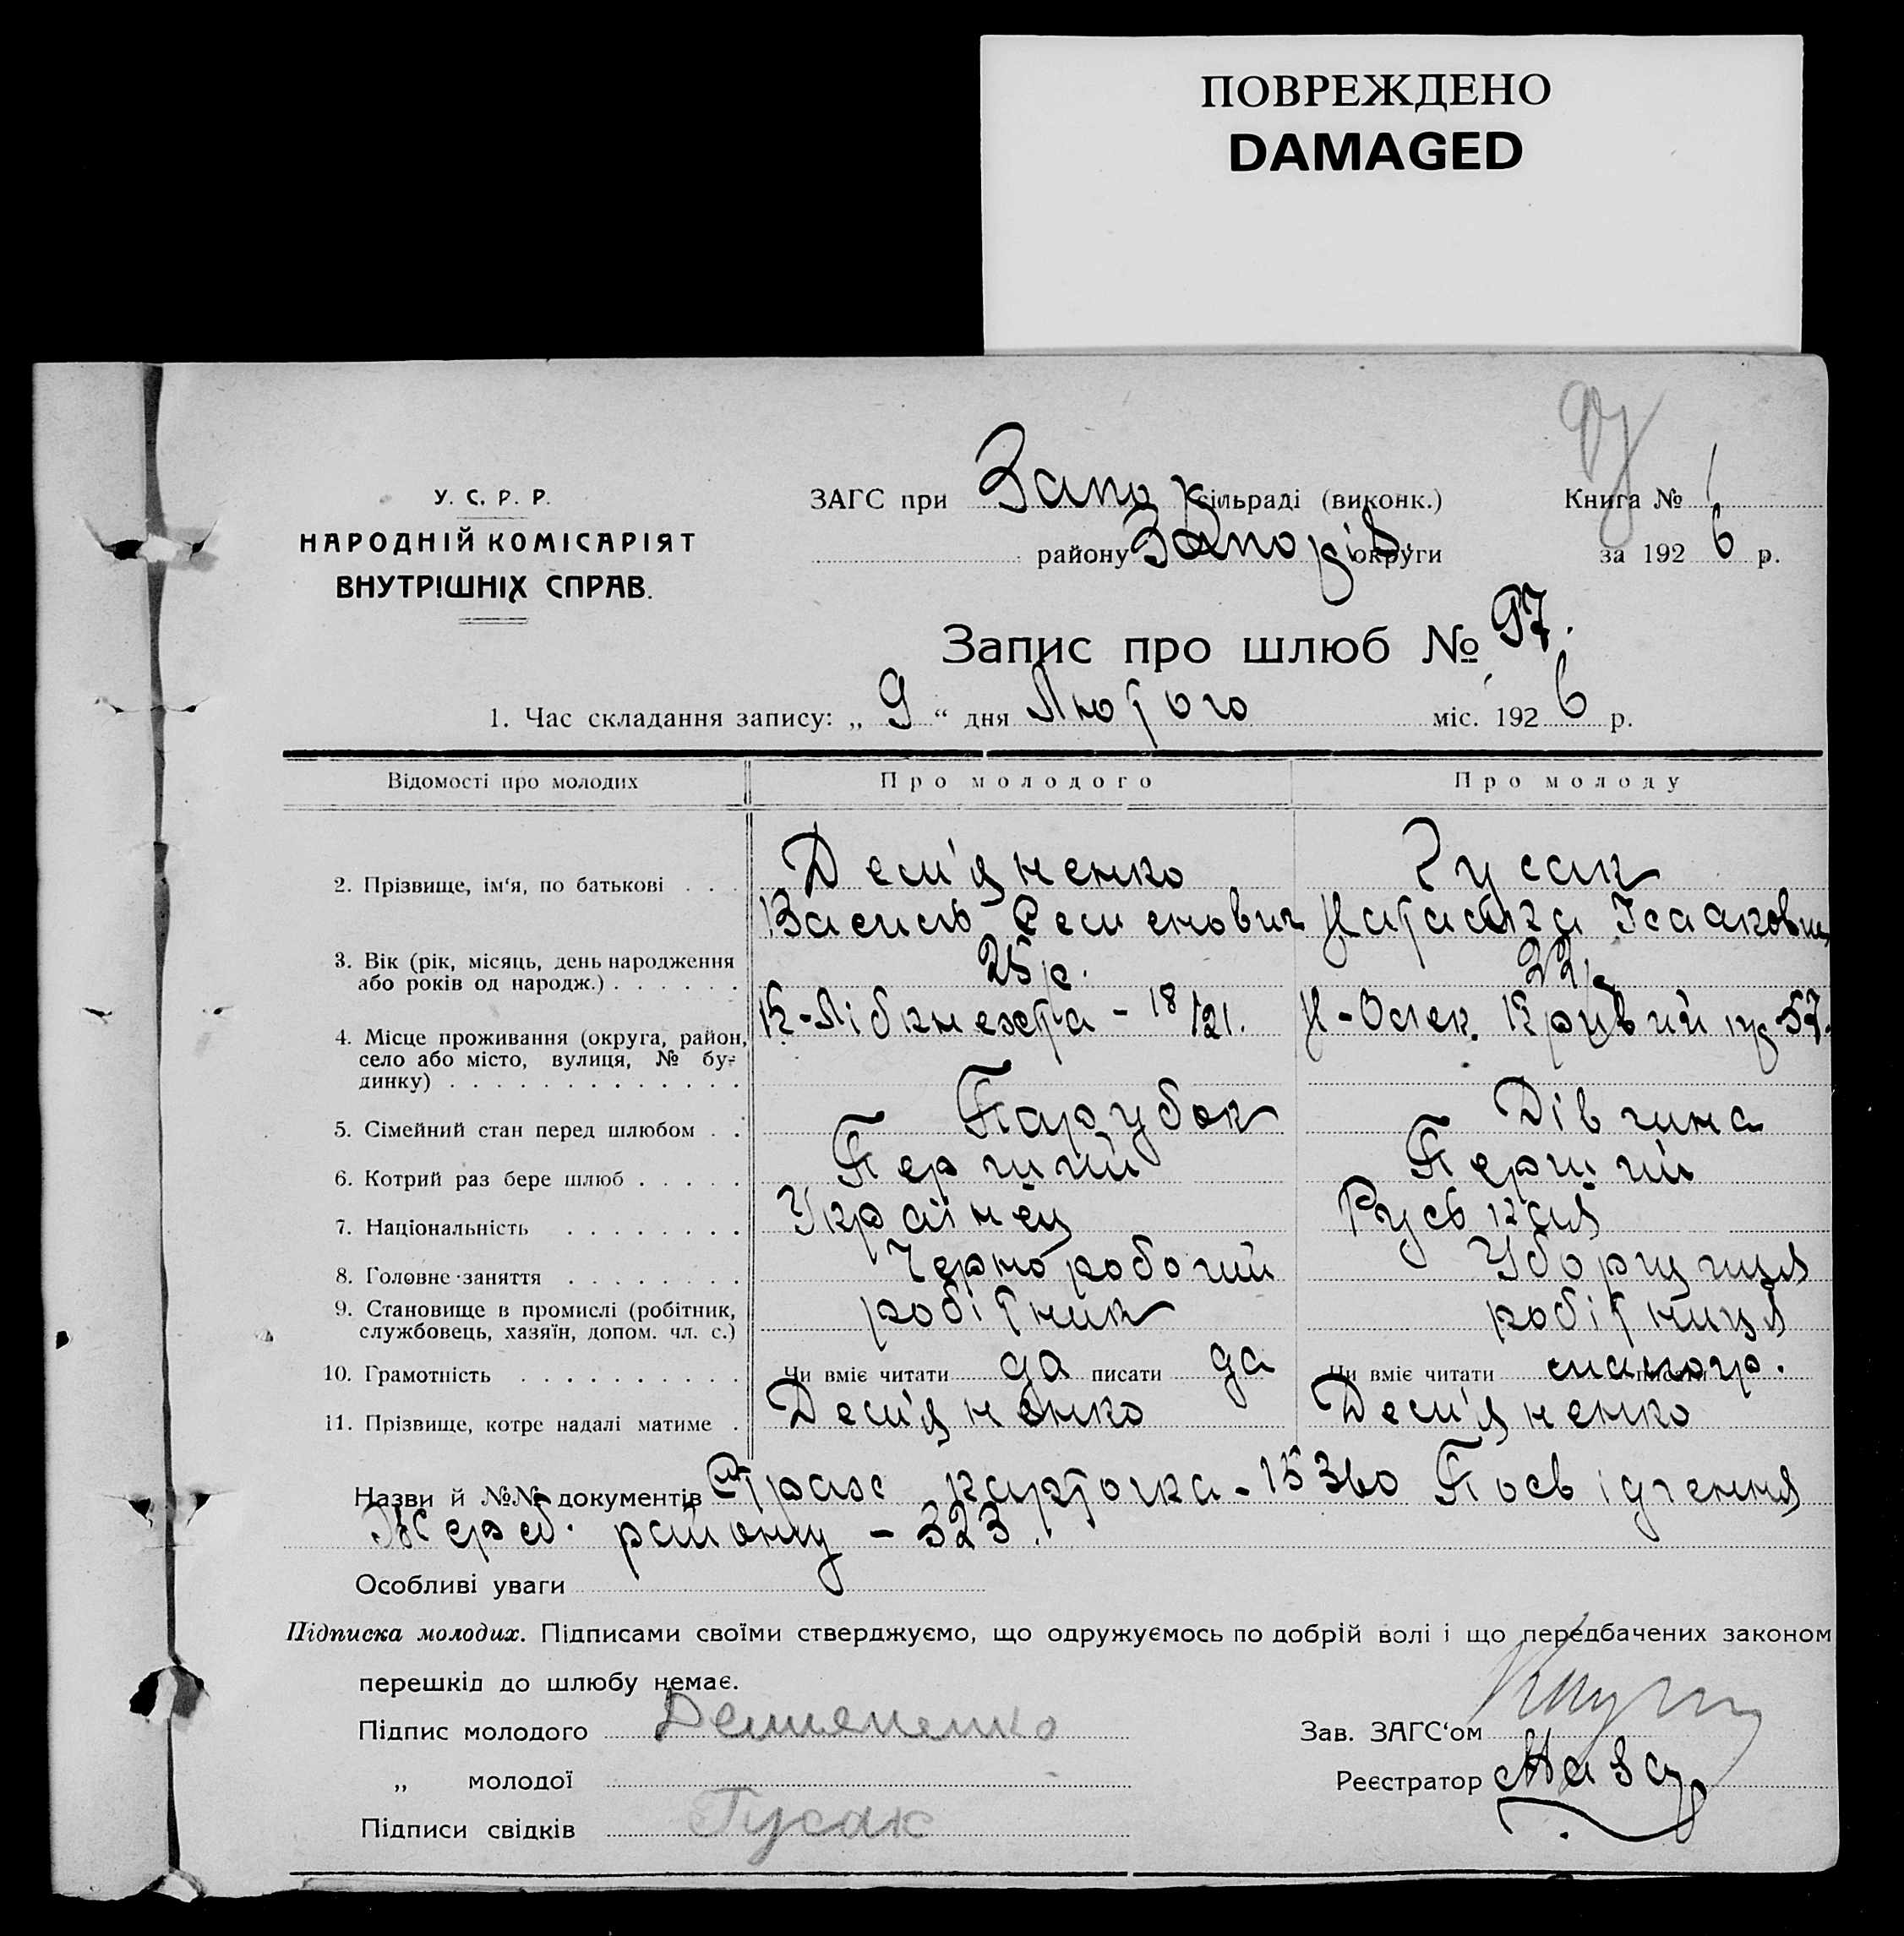 ПОВРЕЖДЕНО
DAMAGED
97
У. С. Р. Р.
НАРОДНІЙ КОМІСАРІЯТ
ВНУТРІШНІХ СПРАВ.
ЗАГС при Запор сільраді (виконк.)
району Запоріз. округи
Книга № 1
за 1926 р.
Запис про шлюб № 97.
1. Час складання запису: „ 9 “ дня Лютого міс. 1926 р.
Відомості про молодих Про молодого Про молоду
2. Прізвище, ім‘я, по батькові . . . Дем'яненко Гусак
Василь Семенович Наталка Ісааковна
3. Вік (рік, місяць, день народження 25 р. 22 р.
або років од народж.) . . . . . .
К-Лібкнехта - 18/21. Н-Олек. Кривий пр 57.
4. Місце проживання (округа, район,
село або місто, вулиця, № бу-
динку) . . . . . . . . . . . . .
5. Сімейний стан перед шлюбом . . Парубок Дівчина
6. Котрий раз бере шлюб . . . . . Перший Перший
7. Національність . . . . . . . . Українец Руськая
8. Головне заняття . . . . . . . . Черноробочий Уборщиця
9. Становище в промислі (робітник, робітник робітниця
службовець, хазяїн, допом. чл. с.)
10. Грамотність . . . . . . . . . . Чи вміє читати да писати да Чи вміє читати писати малогр.
11. Прізвище, котре надалі матиме . Дем'яненко Дем'яненко
Назви й №№ документів Страх карточка - 15360 Посвідчення
Жереб. району - 323.
Особливі уваги
Підписка молодих. Підписами своїми стверджуємо, що одружуємось по добрій волі і що передбачених законом
перешкід до шлюбу немає.
Підпис молодого Демяненко Зав. ЗАГС‘ом
„ молодої Реєстратор
Підписи свідків Гусак